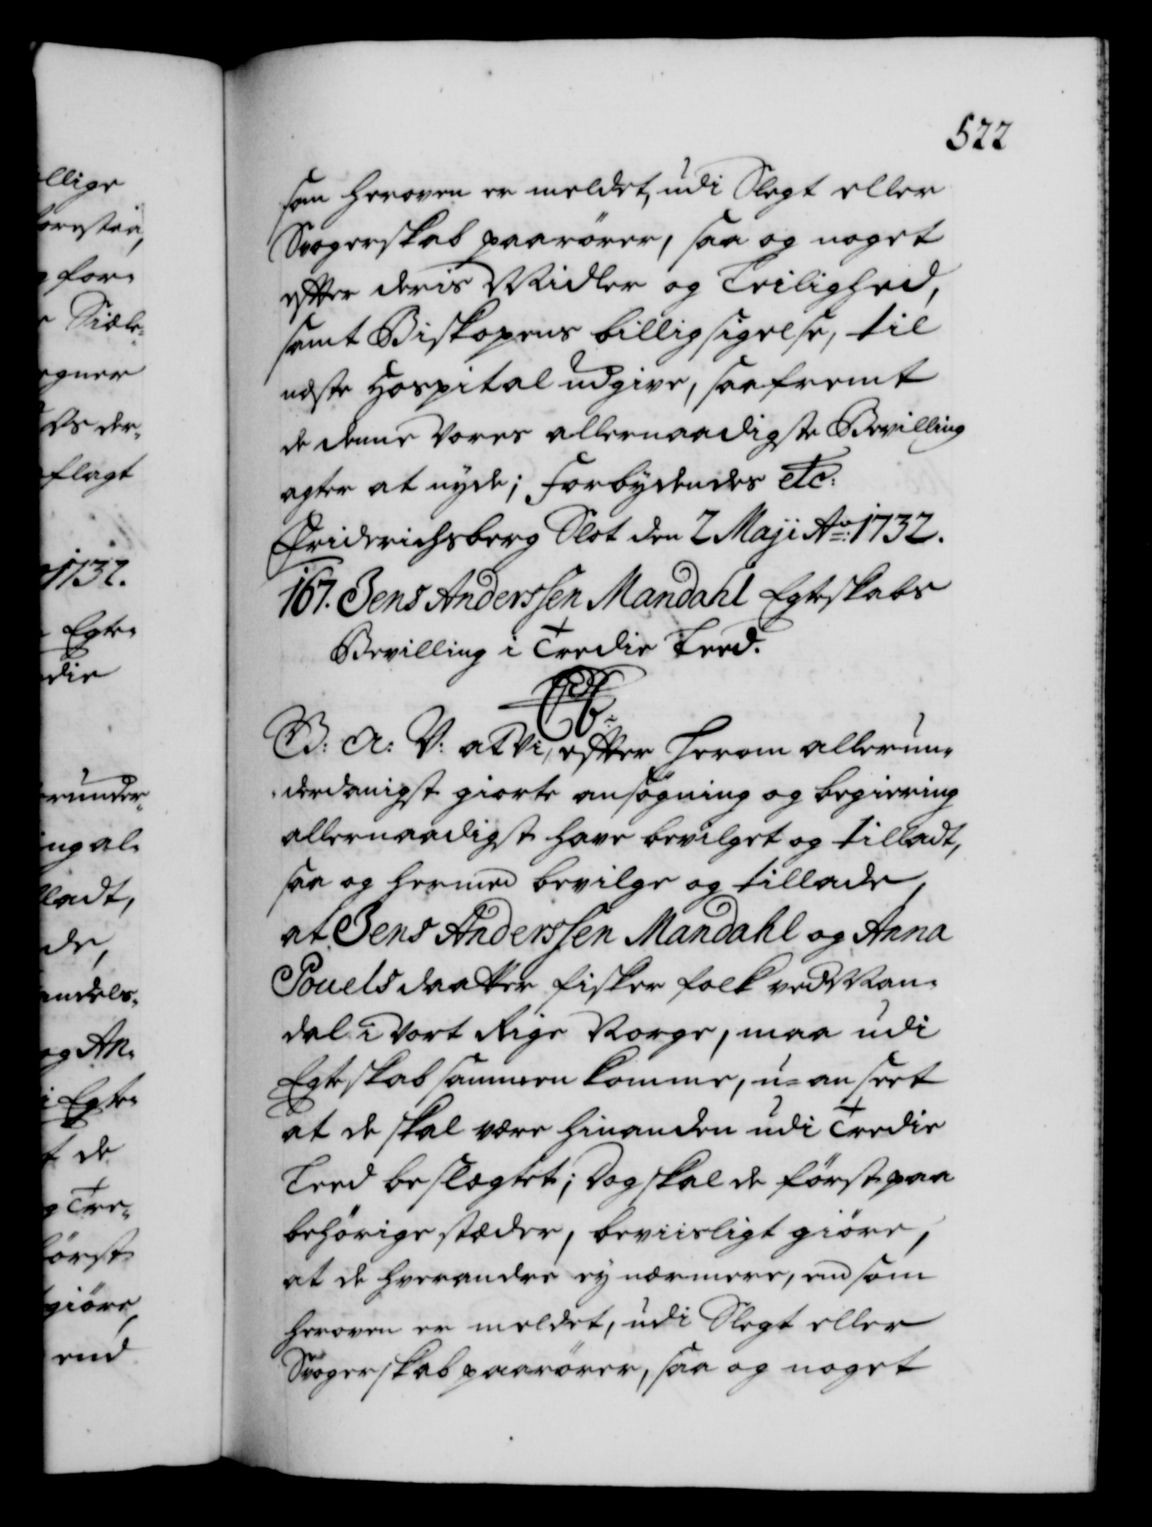 522
som heroven er meldet, udi Slegt eller
Svogerskab paarører, saa og noget
efter deris Midler og Leilighed,
samt Biskopens billigsigelse, til
næste Hospital udgive, saafremt
de denne Vores allernaadigste Bevilling
agter at nyde; Forbydendes etc:
Friderichsberg Slot den 2 Maji Ao: 1732.
167. Jens Anderssen Mandahl Egteskabs
Bevilling i Tredie Leed.
B: A: V: at Vi, efter herom allerun-
derdanigst giorte ansøgning og begiering
allernaadigst have bevilget og tilladt,
saa og hermed bevilge og tillade,
at Jens Anderssen Mandahl og Anna
Pouels daatter fisker folk ved Man-
dal i Vort Rige Norge, maa udi
Egteskab sammen komme, u-anseet
at de skal være hinanden udi Tredie
Leed beslægtet; Dog skal de først paa
behörige stæder, beviisligt giöre,
at de hverandre ey nærmere, end som
heroven er meldet, udi Slegt eller
Svogerskab paarører, saa og noget
llige
for-
egner
der-
slagt
1732.
Egte-
die
runder-
ng al-
ladt,
de,
andels-
og An-
i Egte-
t de
g Tre-
først
giöre,
end